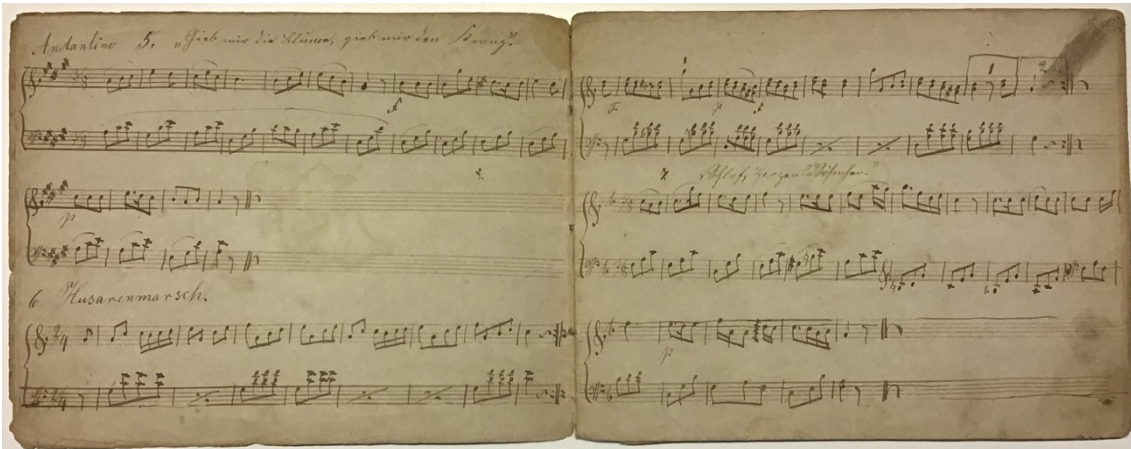 Andantino 5. „Gieb mir die Blume, gieb mir den Kranz".
p
6 Husarenmarsch.
2/4
2/4
1 2
p
7 „Schlaf, Herzenssöhnchen.
p